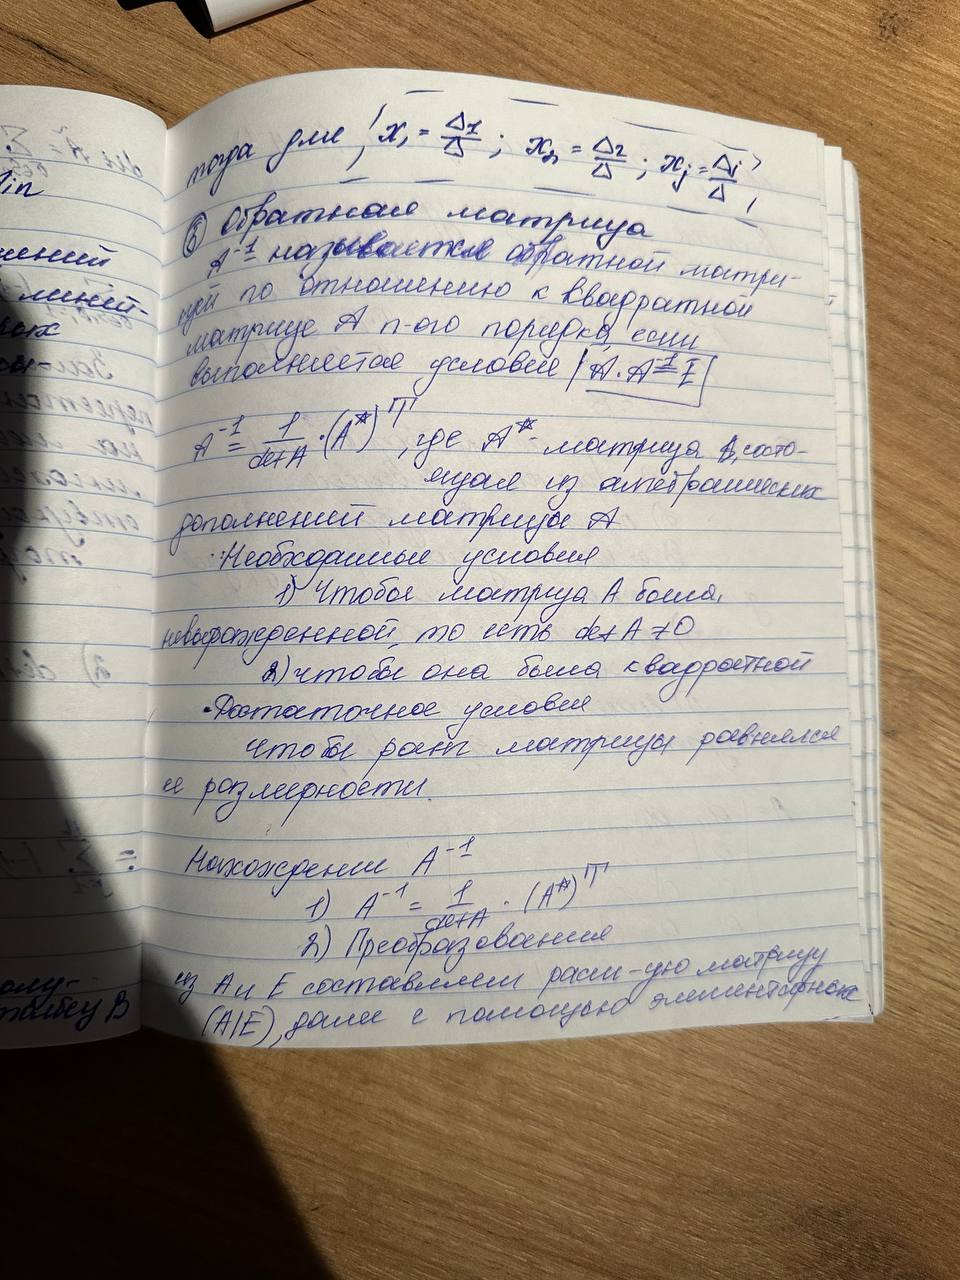 тогда для x₁ = Δ1/Δ ; x₂ = Δ2/Δ ; xⱼ = Δj/Δ
③ Обратная матрица
A⁻¹ - называется обратной матри-
цей по отношению к квадратной
матрице A n-ого порядка если
выполняется условие A · A⁻¹ = I
A⁻¹ = 1/detA · (A*)ᵀ, где A* - матрица, состо-
ящая из алгебраических
дополнений матрицы A
· Необходимые условия
1) Чтобы матрица A была
невырожденной, то есть det A ≠ 0
2) чтобы она была квадратной
· Достаточное условие
Чтобы ранг матрицы равнялся
ее размерности.
Нахождении A⁻¹
1) A⁻¹ = 1/detA · (A*)ᵀ
2) Преобразования
из A и E составляем расш-ую матрицу
(A|E), далее с помощью элементарных
лений
линей-
ных
толбцу B